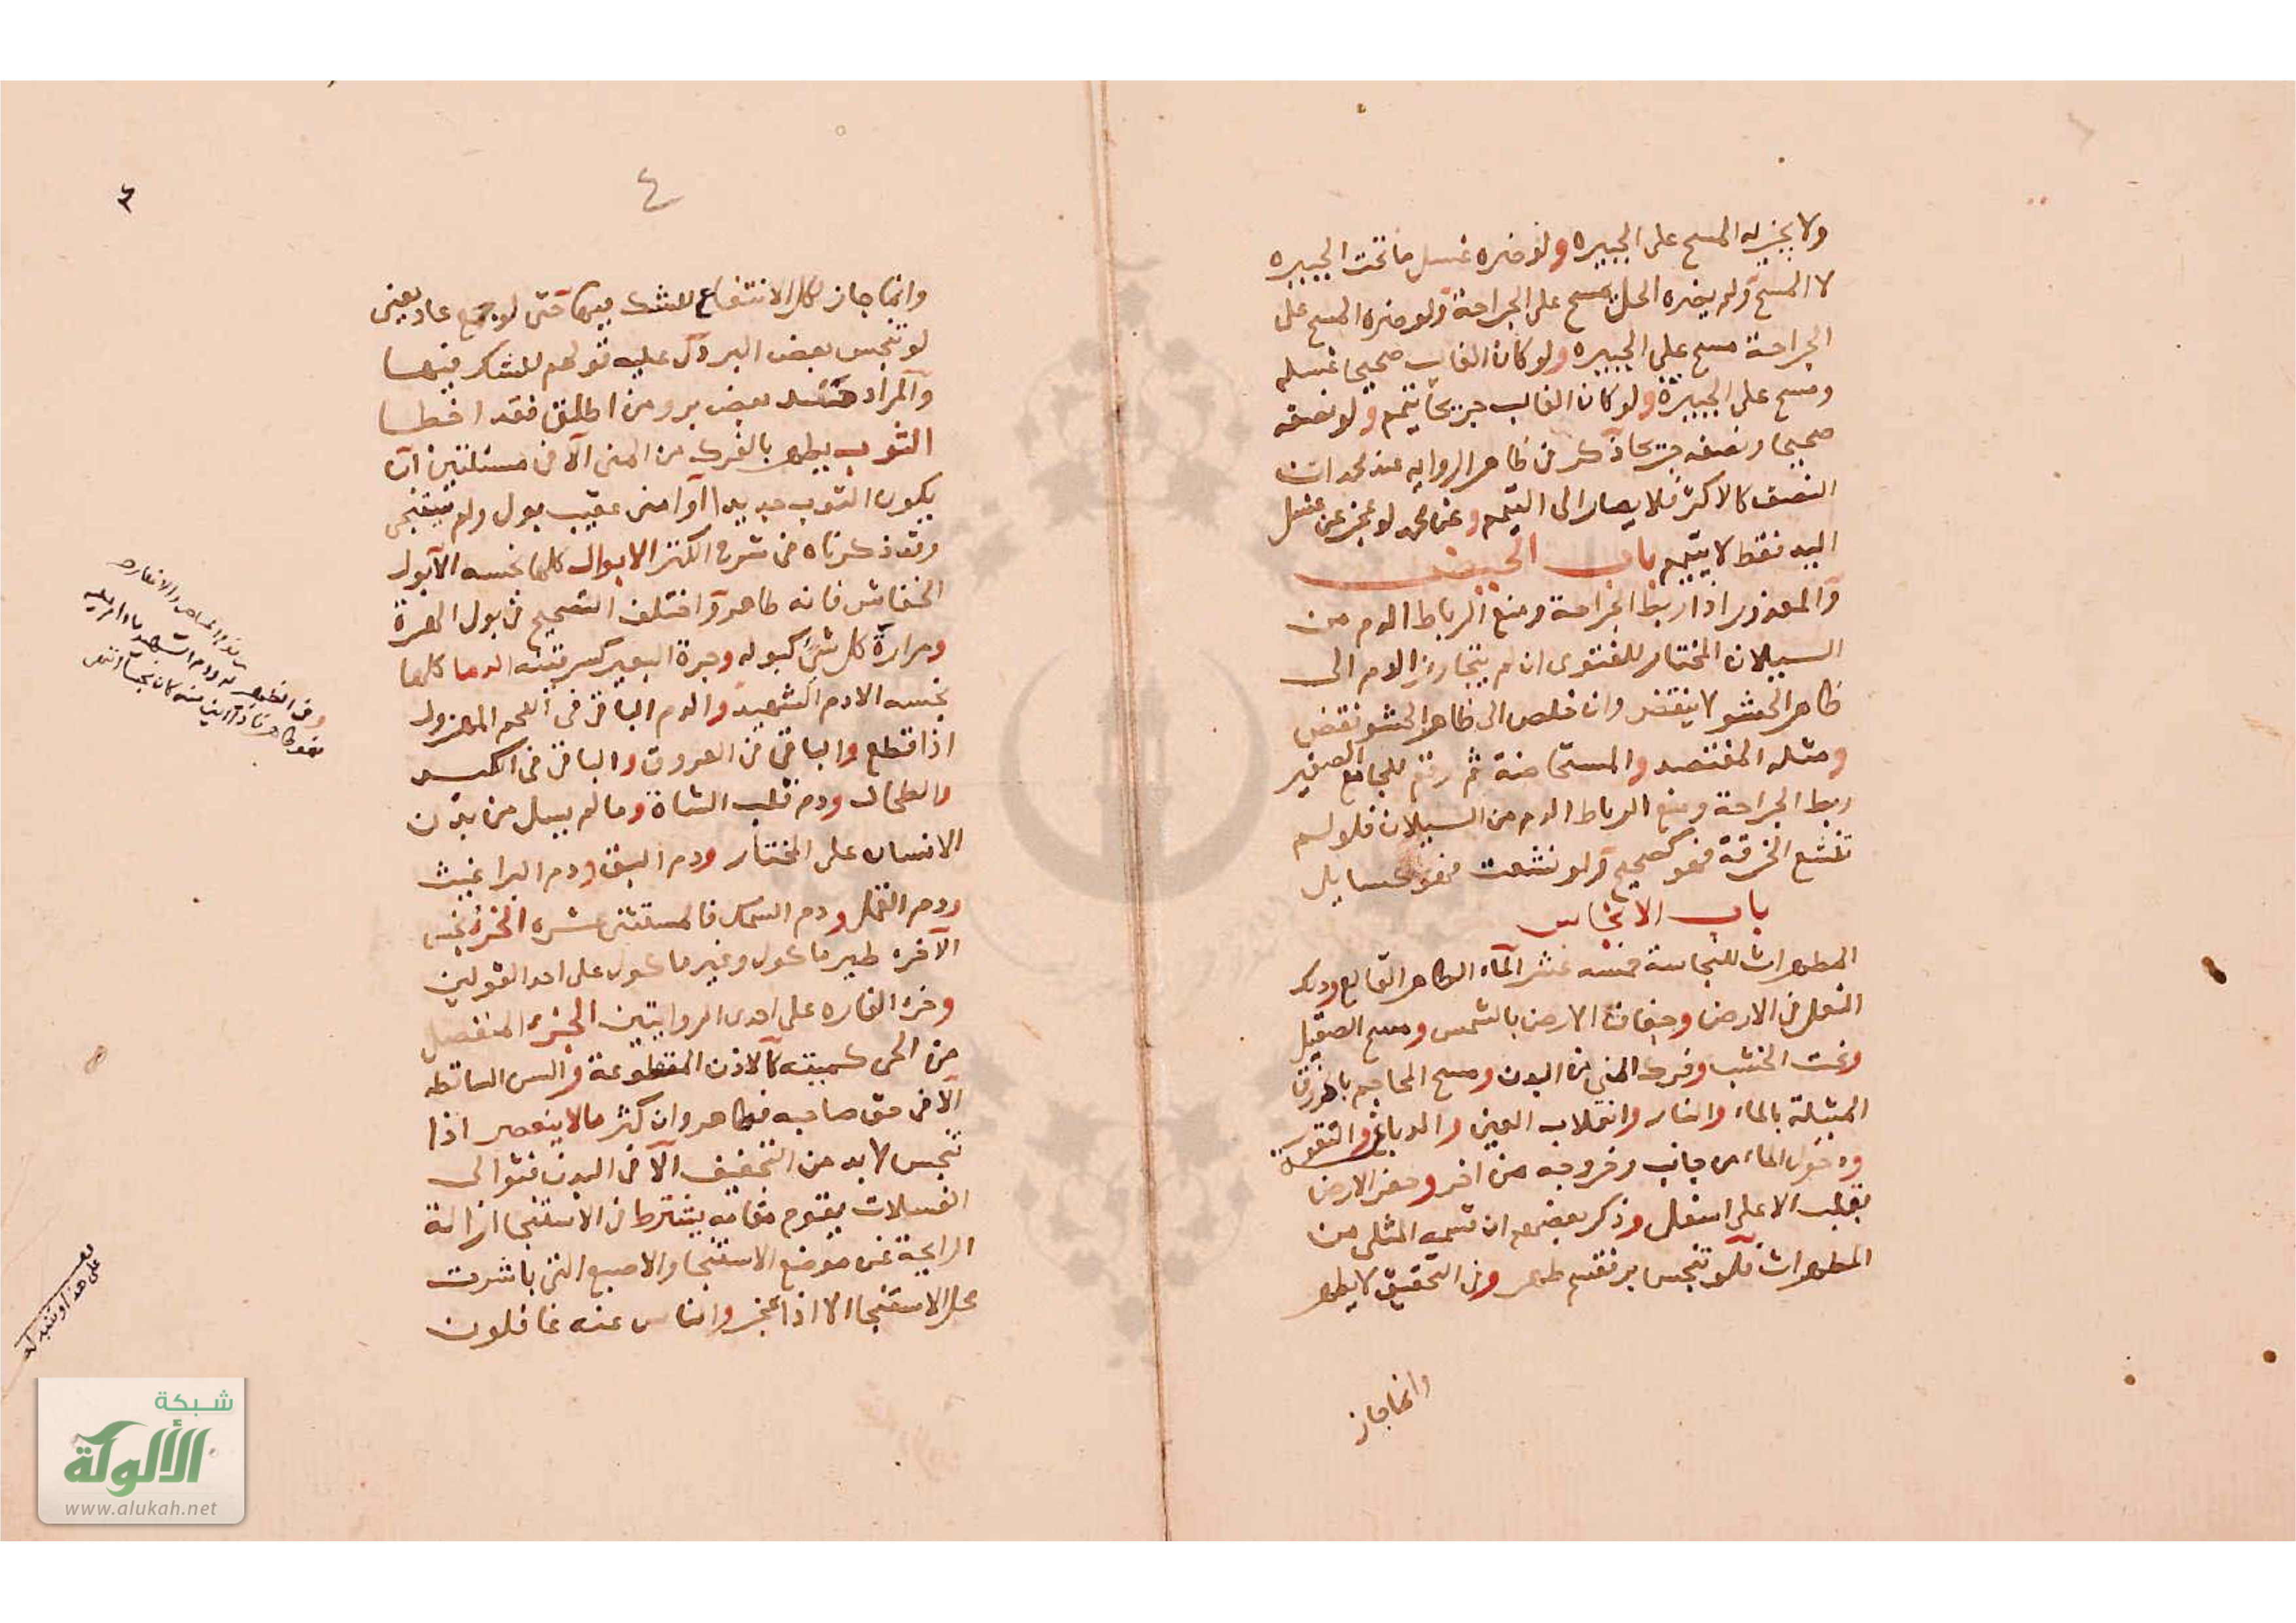 ولا يجزيه المسح على الجبيره ولو ضره غسل ما تحت الجبيره
لا المسح ولم يضره الحل مسح على الجراحة ولو ضره المسح على
الجراحة مسح على الجبيره ولو كان الغالب صحيحا غسله
ومسح على الجبيرة ولو كان الغالب جريحا يتيمم ولو نصفه
صحيحا ونصفه جريحا ذكر في ظاهر الروايه عند محمد ان
النصف كالاكثر فلا يصار الى التيمم وعن محمد لو عجز عن غسل
اليد فقط لا يتيمم باب الحيض
والمعذور اذا ربط الجراحة ومنع الرباط الدم من
السيلان المختار للفتوى ان لم يتجاوز الدم الى
ظاهر الحشو لا ينقض وان خلص الى ظاهر الحشو نقض
ومثله المفتصد والمستحاضة ثم رقم للجامع الصغير
ربط الجراحة ومنع الرباط الدم من السيلان فلو لم
تنشع الخرقة فهو كصحيح ولو نشعت فهو كسايل
باب الانجاس
المطهرات للنجاسة خمسه عشر المآء الطاهر القالع ودلك
النعل في الارض وجفاف الارض بالشمس ومسح الصقيل
ونحت الخشب وفرك المني من البدن ومسح المحاجم بالخرق
المبتلة بالماء والنار وانقلاب العين والدباغ والتقور
ودخول الماء من جانب وخروجه من اخر وحفر الارض
بقلب الاعلى اسفل وذكر بعضهم ان قسمه المثلي من
المطهرات فلو تنجس بر فقسم طهر وفي التحقيق لا يطهر
وانما جاز
٤
٣
وانما جاز لكل الانتفاع للشك بينهما حتى لو جمع عاد يعني
لو تنجس بعض البر دل عليه قولهم للشك فيها
والمراد بعض بر ومن اطلق فقد اخطا
الثوب يطهر بالفرك من المني الا في مسئلتين ان
يكون الثوب جديدا او امنى عقيب بول ولم يستنجى
وقد ذكرناه في شرح الكنز الابوال كلها نجسه الا بول
الخفاش فانه طاهر واختلف التصحيح في بول الهرة
ومرارة كل شئ كبوله وجرة البعير كسرقينه الدما كلها
نجسه الا دم الشهيد والدم الباقي في اللحم المهزول
اذا قطع والباقي في العروق والباقي في الكبد
والطحال ودم قلب الشاة وما لم يسل من بدن
الانسان على المختار ودم البق ودم البراغيث
ودم القمل ودم السمك فالمستثنى عشره الخرؤ نجس
الا خرء طير ماكول وغير ماكول على احد القولين
وخرء الفاره على احدى الروايتين الجزء المنفصل
من الحي كميته كالاذن المقطوعة والسن الساقطه
الا في حق صاحبه فطاهر وان كثر ما لا ينعصر اذا
تنجس لا بد من التجفيف الا في البدن فتوالى
الغسلات يقوم مقامه يشترط في الاستنجا ازالة
الرايحة عن موضع الاستنجا والاصبع التي باشرت
محل الاستنجا الا اذا عجز والناس عنه غافلون
على هذا
شبكة
الألوكة
www.alukah.net